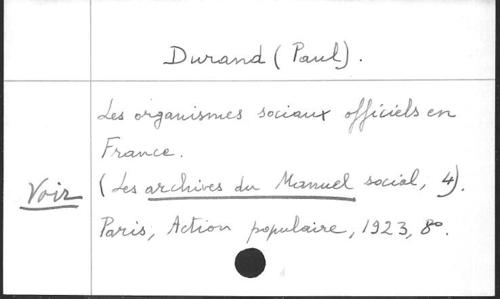 Durand (Paul).
Les organismes sociaux officiels en
France.
(Les archives du Manuel social, 4).
Voir
Paris, Action populaire, 1923, 8º.